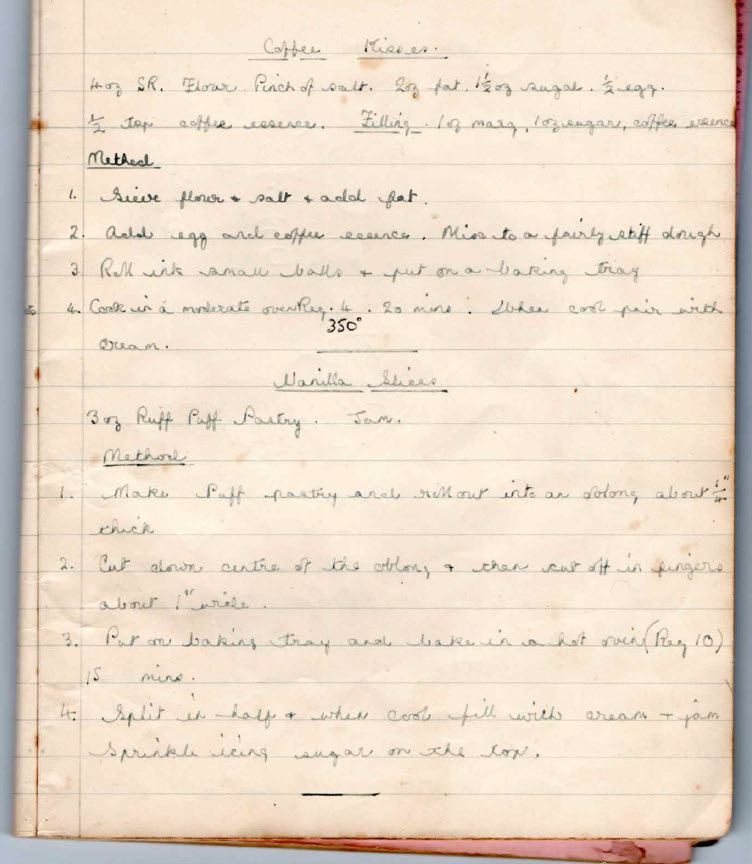 Coffee Kisses.
4oz SR. Flour Pinch of salt. 2oz fat. 1½oz sugar. ½ egg.
½ tsp coffee essence. Filling. 1oz marg, 1oz sugar, coffee essence
Method
1. Sieve flour + salt + add fat.
2. Add egg and coffee essence. Mix to a fairly stiff dough
3 Roll into small balls + put on a baking tray
4. Cook in a moderate oven Reg. 4. 20 mins. When cool pair with
350°
cream.
Vanilla Slices
3oz Ruff Puff Pastry. Jam.
Method
1. Make Puff pastry and roll out into an oblong about ¼"
thick
2. Cut down centre of the oblong + then cut off in fingers
about 1" wide.
3. Put on baking tray and bake in a hot oven (Reg 10)
15 mins.
4. Split in half + when cool fill with cream + jam
Sprinkle icing sugar on the top.